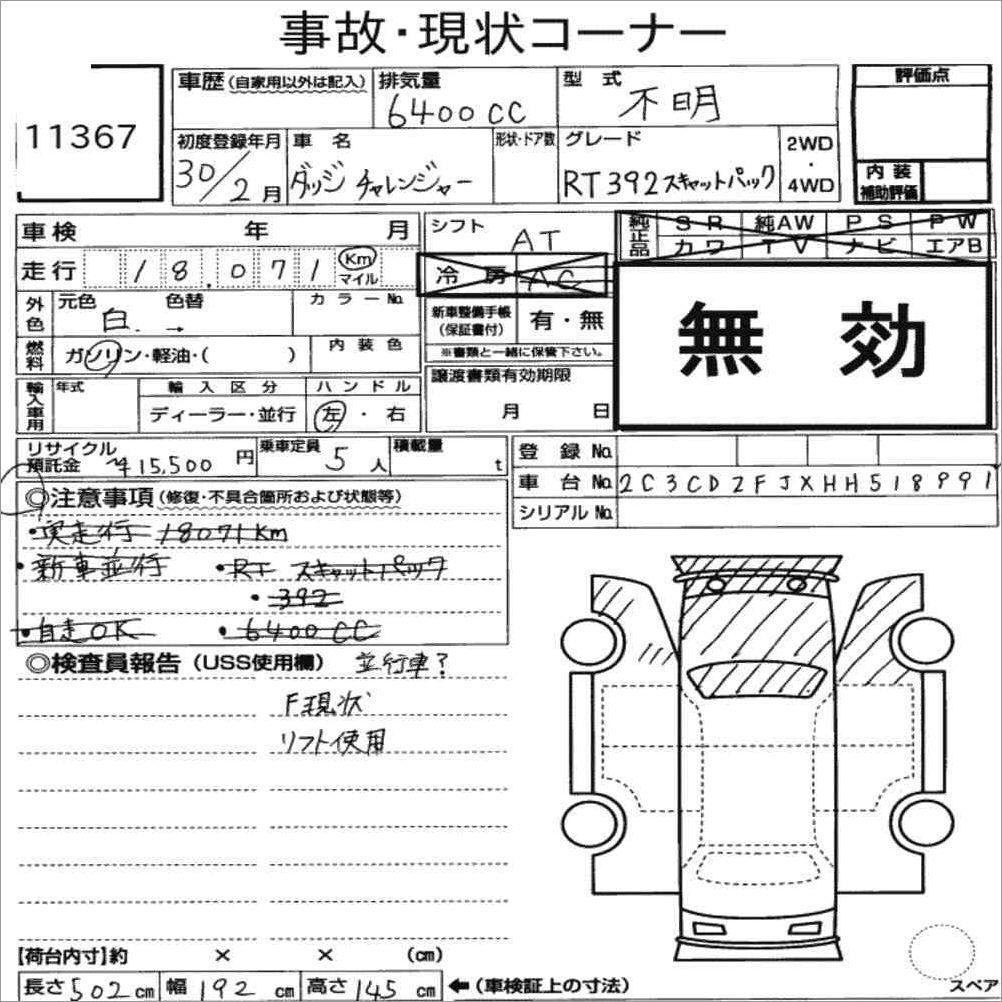 事故・現状コーナー
11367
車歴(自家用以外は記入) 排気量 6400CC 型式 不明 評価点
初度登録年月 30/2月 車名 ダッジ チャレンジャー 形状・ドア数 グレード RT392スキャットパック 2WD・4WD 内装補助評価
車検 年 月 シフト AT 純正品 SR 純AW PS PW
カワ TV ナビ エアB
走行 18.071 Km マイル 冷房 AC
外色 元色 白. 色替 → カラーNo. 新車整備手帳(保証書付) 有・無 無効
燃料 ガソリン・軽油・( ) 内装色 ※書類と一緒に保管下さい。
輸入車用 年式 輸入区分 ハンドル 譲渡書類有効期限
ディーラー・並行 左・右 月 日
リサイクル預託金 ¥15,500円 乗車定員 5人 積載量 t 登録No.
車台No. 2C3CDZFJXHH518991
シリアルNo.
◎注意事項(修復・不具合箇所および状態等)
・実走行 18071Km
・新車並行 ・RT スキャットパック
・392
・自走OK ・6400CC
◎検査員報告(USS使用欄) 並行車?
F現状
リフト使用
【荷台内寸】約 × × (cm)
長さ502cm 幅192cm 高さ145cm ←(車検証上の寸法) スペア